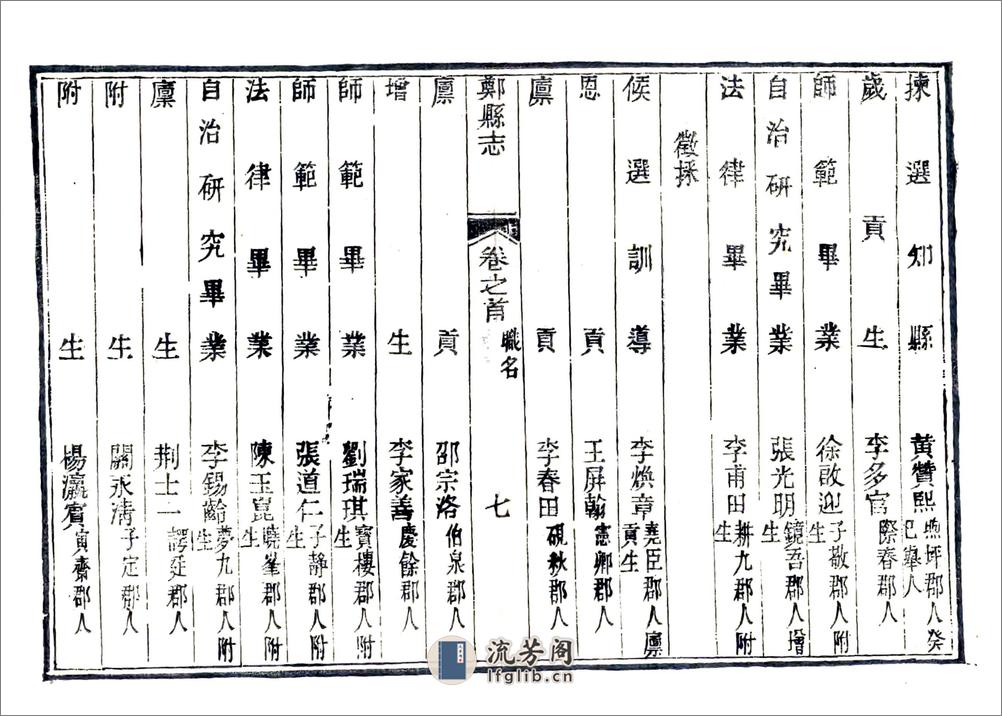 揀選知縣 黃贊熙 煦坪郡人癸巳舉人
歲貢生 李多富 際春郡人
師範畢業 徐啟迎 子敬郡人附生
自治研究畢業 張光明 鏡吾郡人增生
法律畢業 李甫田 耕九郡人附生
徵採
候選訓導 李煥章 堯臣郡人廪貢生
恩貢 王屏翰 憲卿郡人
廪貢 李春田 硯秋郡人
鄭縣志 卷之首 職名 七
廪貢 邵宗洛 伯泉郡人
增生 李家善 慶餘郡人
師範畢業 劉瑞琪 寶樓郡人附生
師範畢業 張道仁 子靜郡人附生
法律畢業 陳玉崑 曉峯郡人附生
自治研究畢業 李錫齡 夢九郡人附生
廪生 荆士一 諤廷郡人
附生 關永清 子定郡人
附生 楊瀛賓 寅齋郡人
流芳阁
lfglib.cn